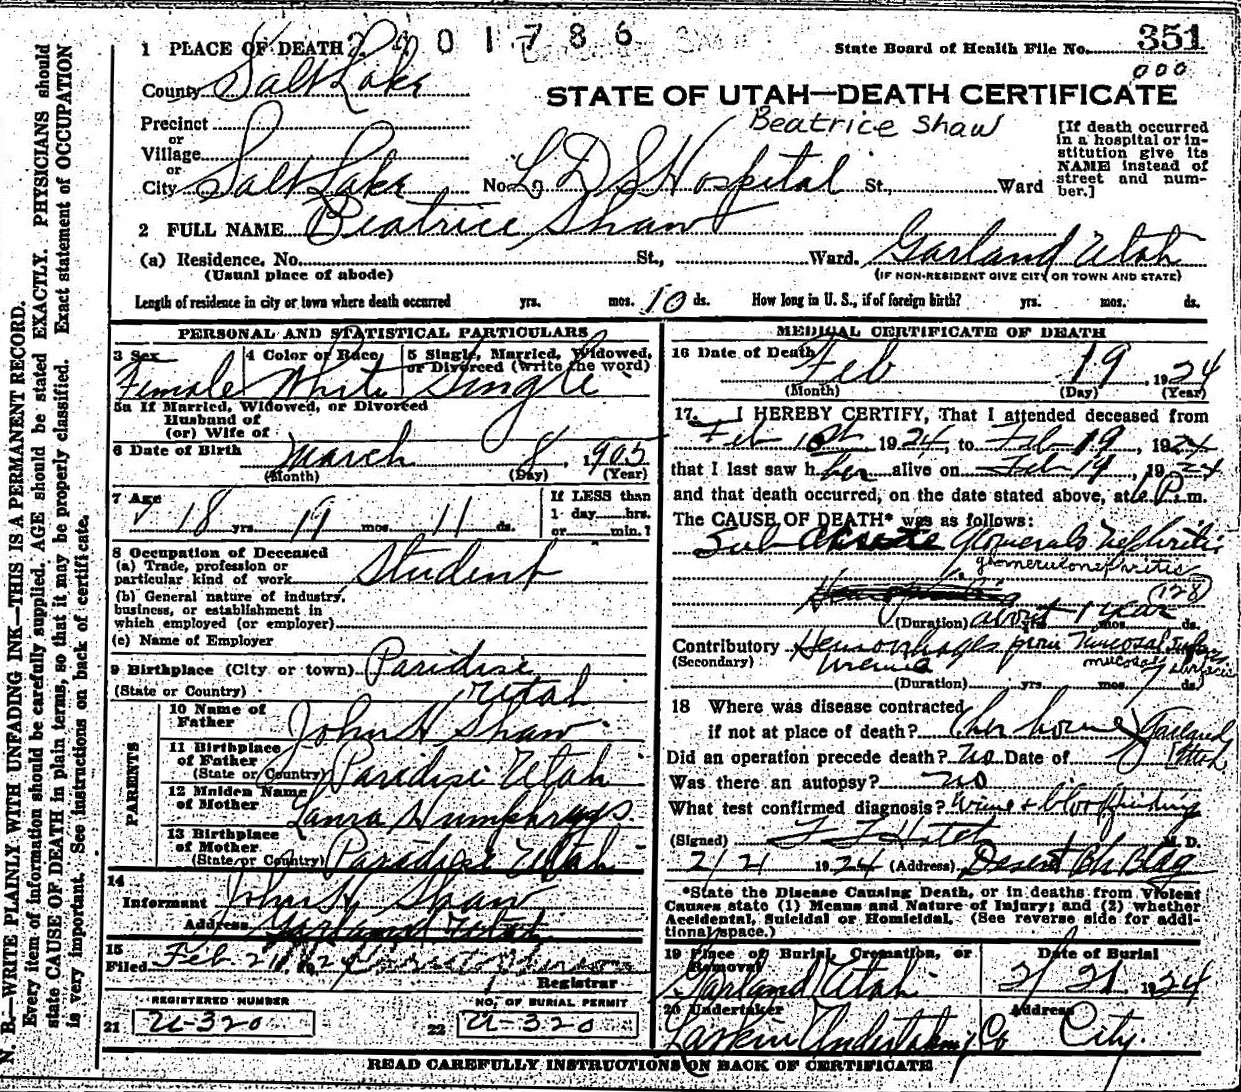 1 PLACE OF DEATH 2401786
State Board of Health File No. 351
000
County Salt Lake
STATE OF UTAH—DEATH CERTIFICATE
Beatrice Shaw
Precinct
or
Village
or
City Salt Lake No. L D S Hospital St., Ward
[If death occurred
in a hospital or in-
stitution give its
NAME instead of
street and num-
ber.]
2 FULL NAME Beatrice Shaw
(a) Residence, No. St., Ward. Garland Utah
(Usual place of abode) (IF NON-RESIDENT GIVE CITY OR TOWN AND STATE)
Length of residence in city or town where death occurred yrs. mos. 10 ds. How long in U. S., if of foreign birth? yrs. mos. ds.
PERSONAL AND STATISTICAL PARTICULARS
3 Sex 4 Color or Race 5 Single, Married, Widowed,
or Divorced (write the word)
Female White Single
5a If Married, Widowed, or Divorced
Husband of
(or) Wife of
6 Date of Birth March 8, 1905
(Month) (Day) (Year)
7 Age
18 yrs. 11 mos. 11 ds.
If LESS than
1 day hrs.
or min.?
8 Occupation of Deceased
(a) Trade, profession or
particular kind of work Student
(b) General nature of industry,
business, or establishment in
which employed (or employer)
(c) Name of Employer
9 Birthplace (City or town) Paridise
(State or Country) Utah
PARENTS
10 Name of
Father John H Shaw
11 Birthplace
of Father
(State or Country) Paradise Utah
12 Maiden Name
of Mother Laura Humphrys.
13 Birthplace
of Mother
(State or Country) Paradise Utah
14
Informant John H. Shaw
Address Garland Utah
15
Filed Feb. 21, 1924
Registrar
REGISTERED NUMBER NO. OF BURIAL PERMIT
21 U-320 22 U-320
MEDICAL CERTIFICATE OF DEATH
16 Date of Death Feb 19, 1924
(Month) (Day) (Year)
17. I HEREBY CERTIFY, That I attended deceased from
Feb 10th 1924, to Feb 19, 1924
that I last saw her alive on Feb 19, 1924
and that death occurred, on the date stated above, at 6 P.m.
The CAUSE OF DEATH* was as follows:
Sub Acute Glomerulo Nephritis
glomerulonephritis
128
(Duration) about 1 year mos. ds.
Contributory Hemorrhages from Mucosal Surfaces
(Secondary) Uremia mucosal surfaces
(Duration) yrs. mos. ds.
18 Where was disease contracted
if not at place of death? (her home) Garland
Utah
Did an operation precede death? No Date of
Was there an autopsy? No
What test confirmed diagnosis? Urine + blood findings
(Signed) F F Hatch M. D.
2/21 1924 (Address) Deseret Bk Bldg
*State the Disease Causing Death, or in deaths from Violent
Causes state (1) Means and Nature of Injury; and (2) whether
Accidental, Suicidal or Homicidal. (See reverse side for addi-
tional space.)
19 Place of Burial, Cremation, or
Removal
Date of Burial
Garland Utah 2/21 1924
20 Undertaker Address
Larkin Undertaking Co City.
READ CAREFULLY INSTRUCTIONS ON BACK OF CERTIFICATE
N. B.—WRITE PLAINLY WITH UNFADING INK—THIS IS A PERMANENT RECORD.
Every item of information should be carefully supplied. AGE should be stated EXACTLY. PHYSICIANS should
state CAUSE OF DEATH in plain terms, so that it may be properly classified. Exact statement of OCCUPATION
is very important. See instructions on back of certificate.